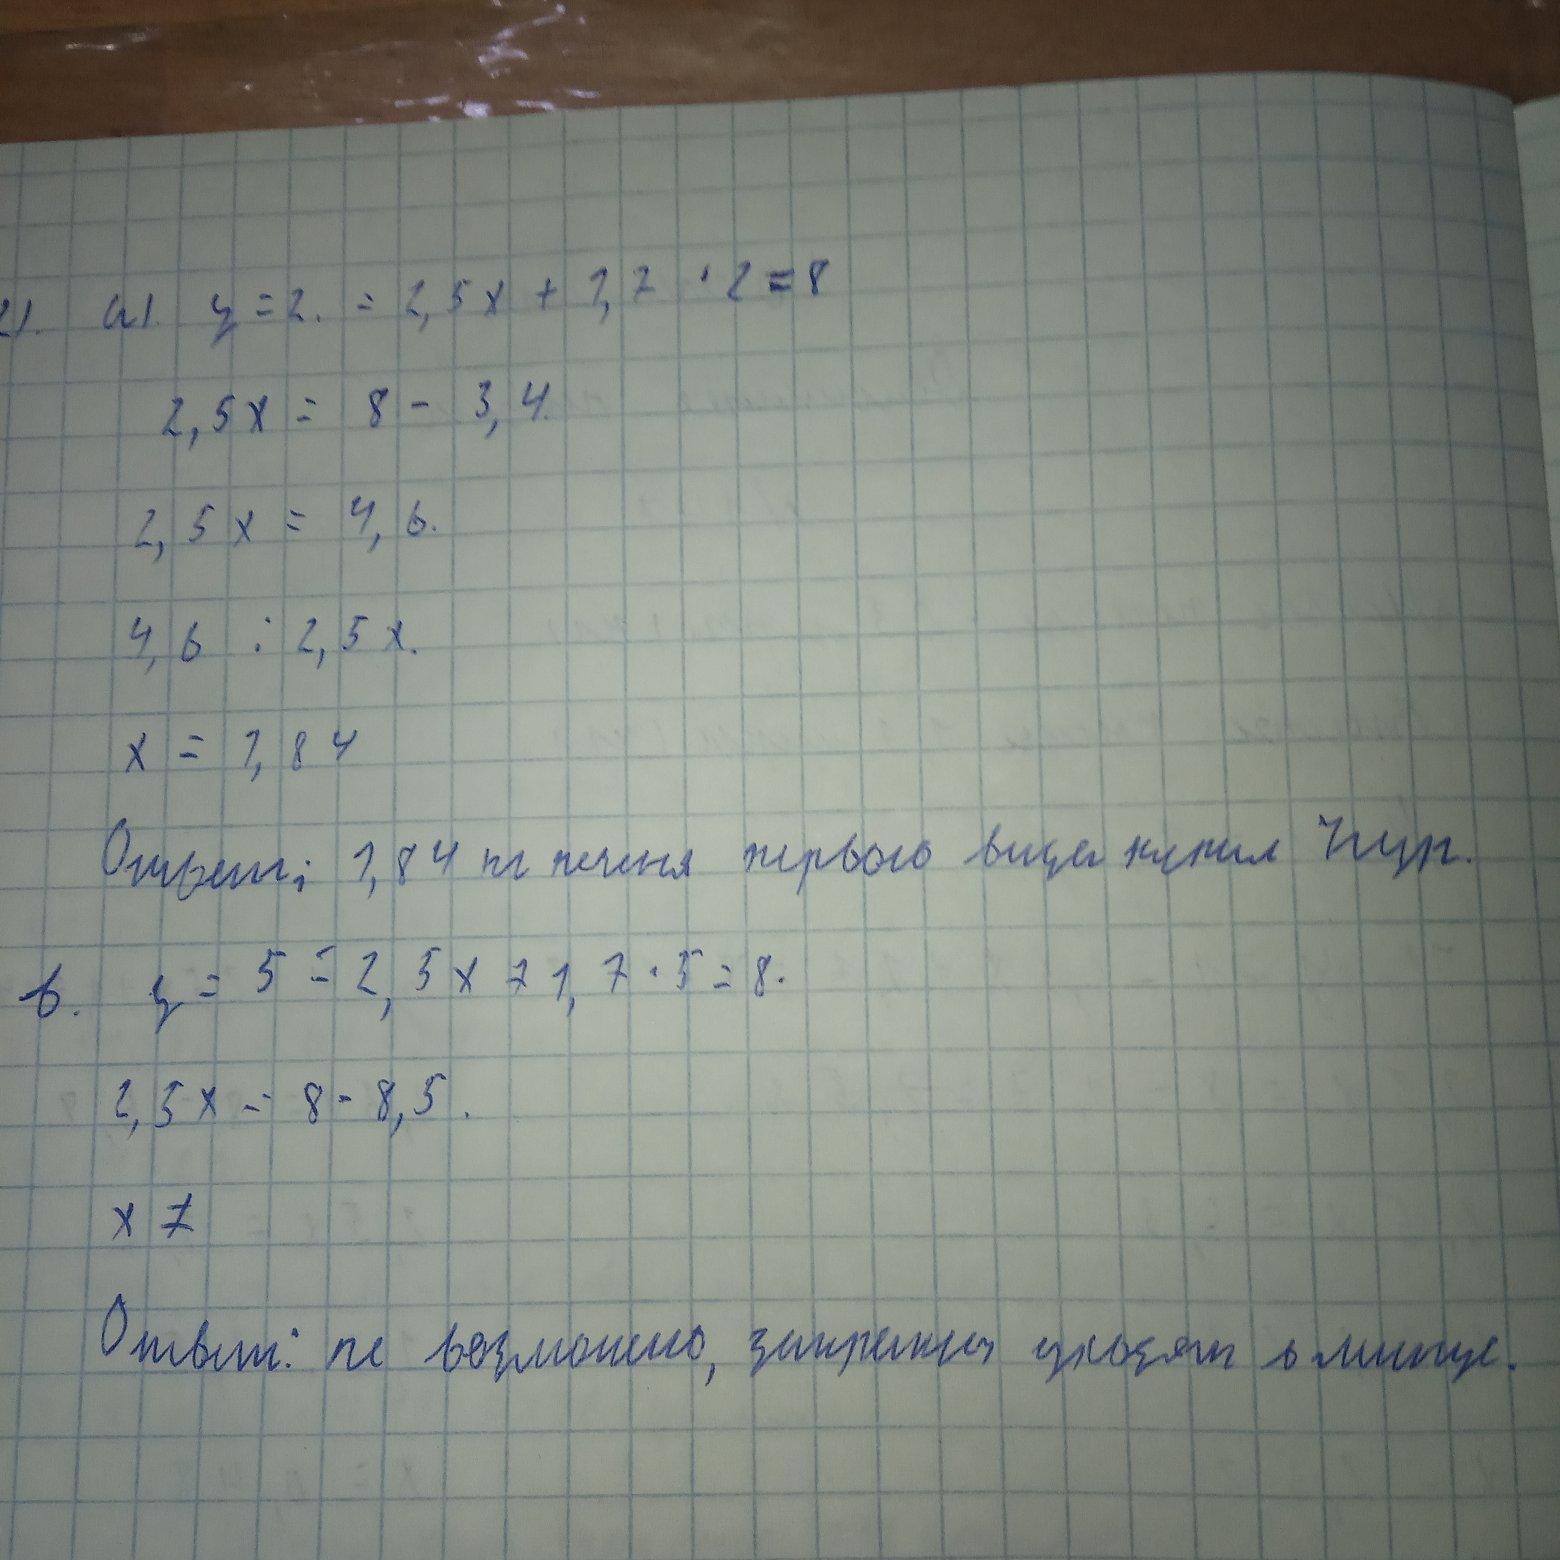 21. а). y = 2. = 2,5x + 1,7 · 2 = 8
2,5x = 8 - 3,4.
2,5x = 4,6.
4,6 : 2,5x.
x = 1,84
Ответ: 1,84 кг печеня первого вида купил
в. y = 5 = 2,5x + 1,7 · 5 = 8.
2,5x = 8 - 8,5.
x
Ответ: не возможно, уходят в минус.